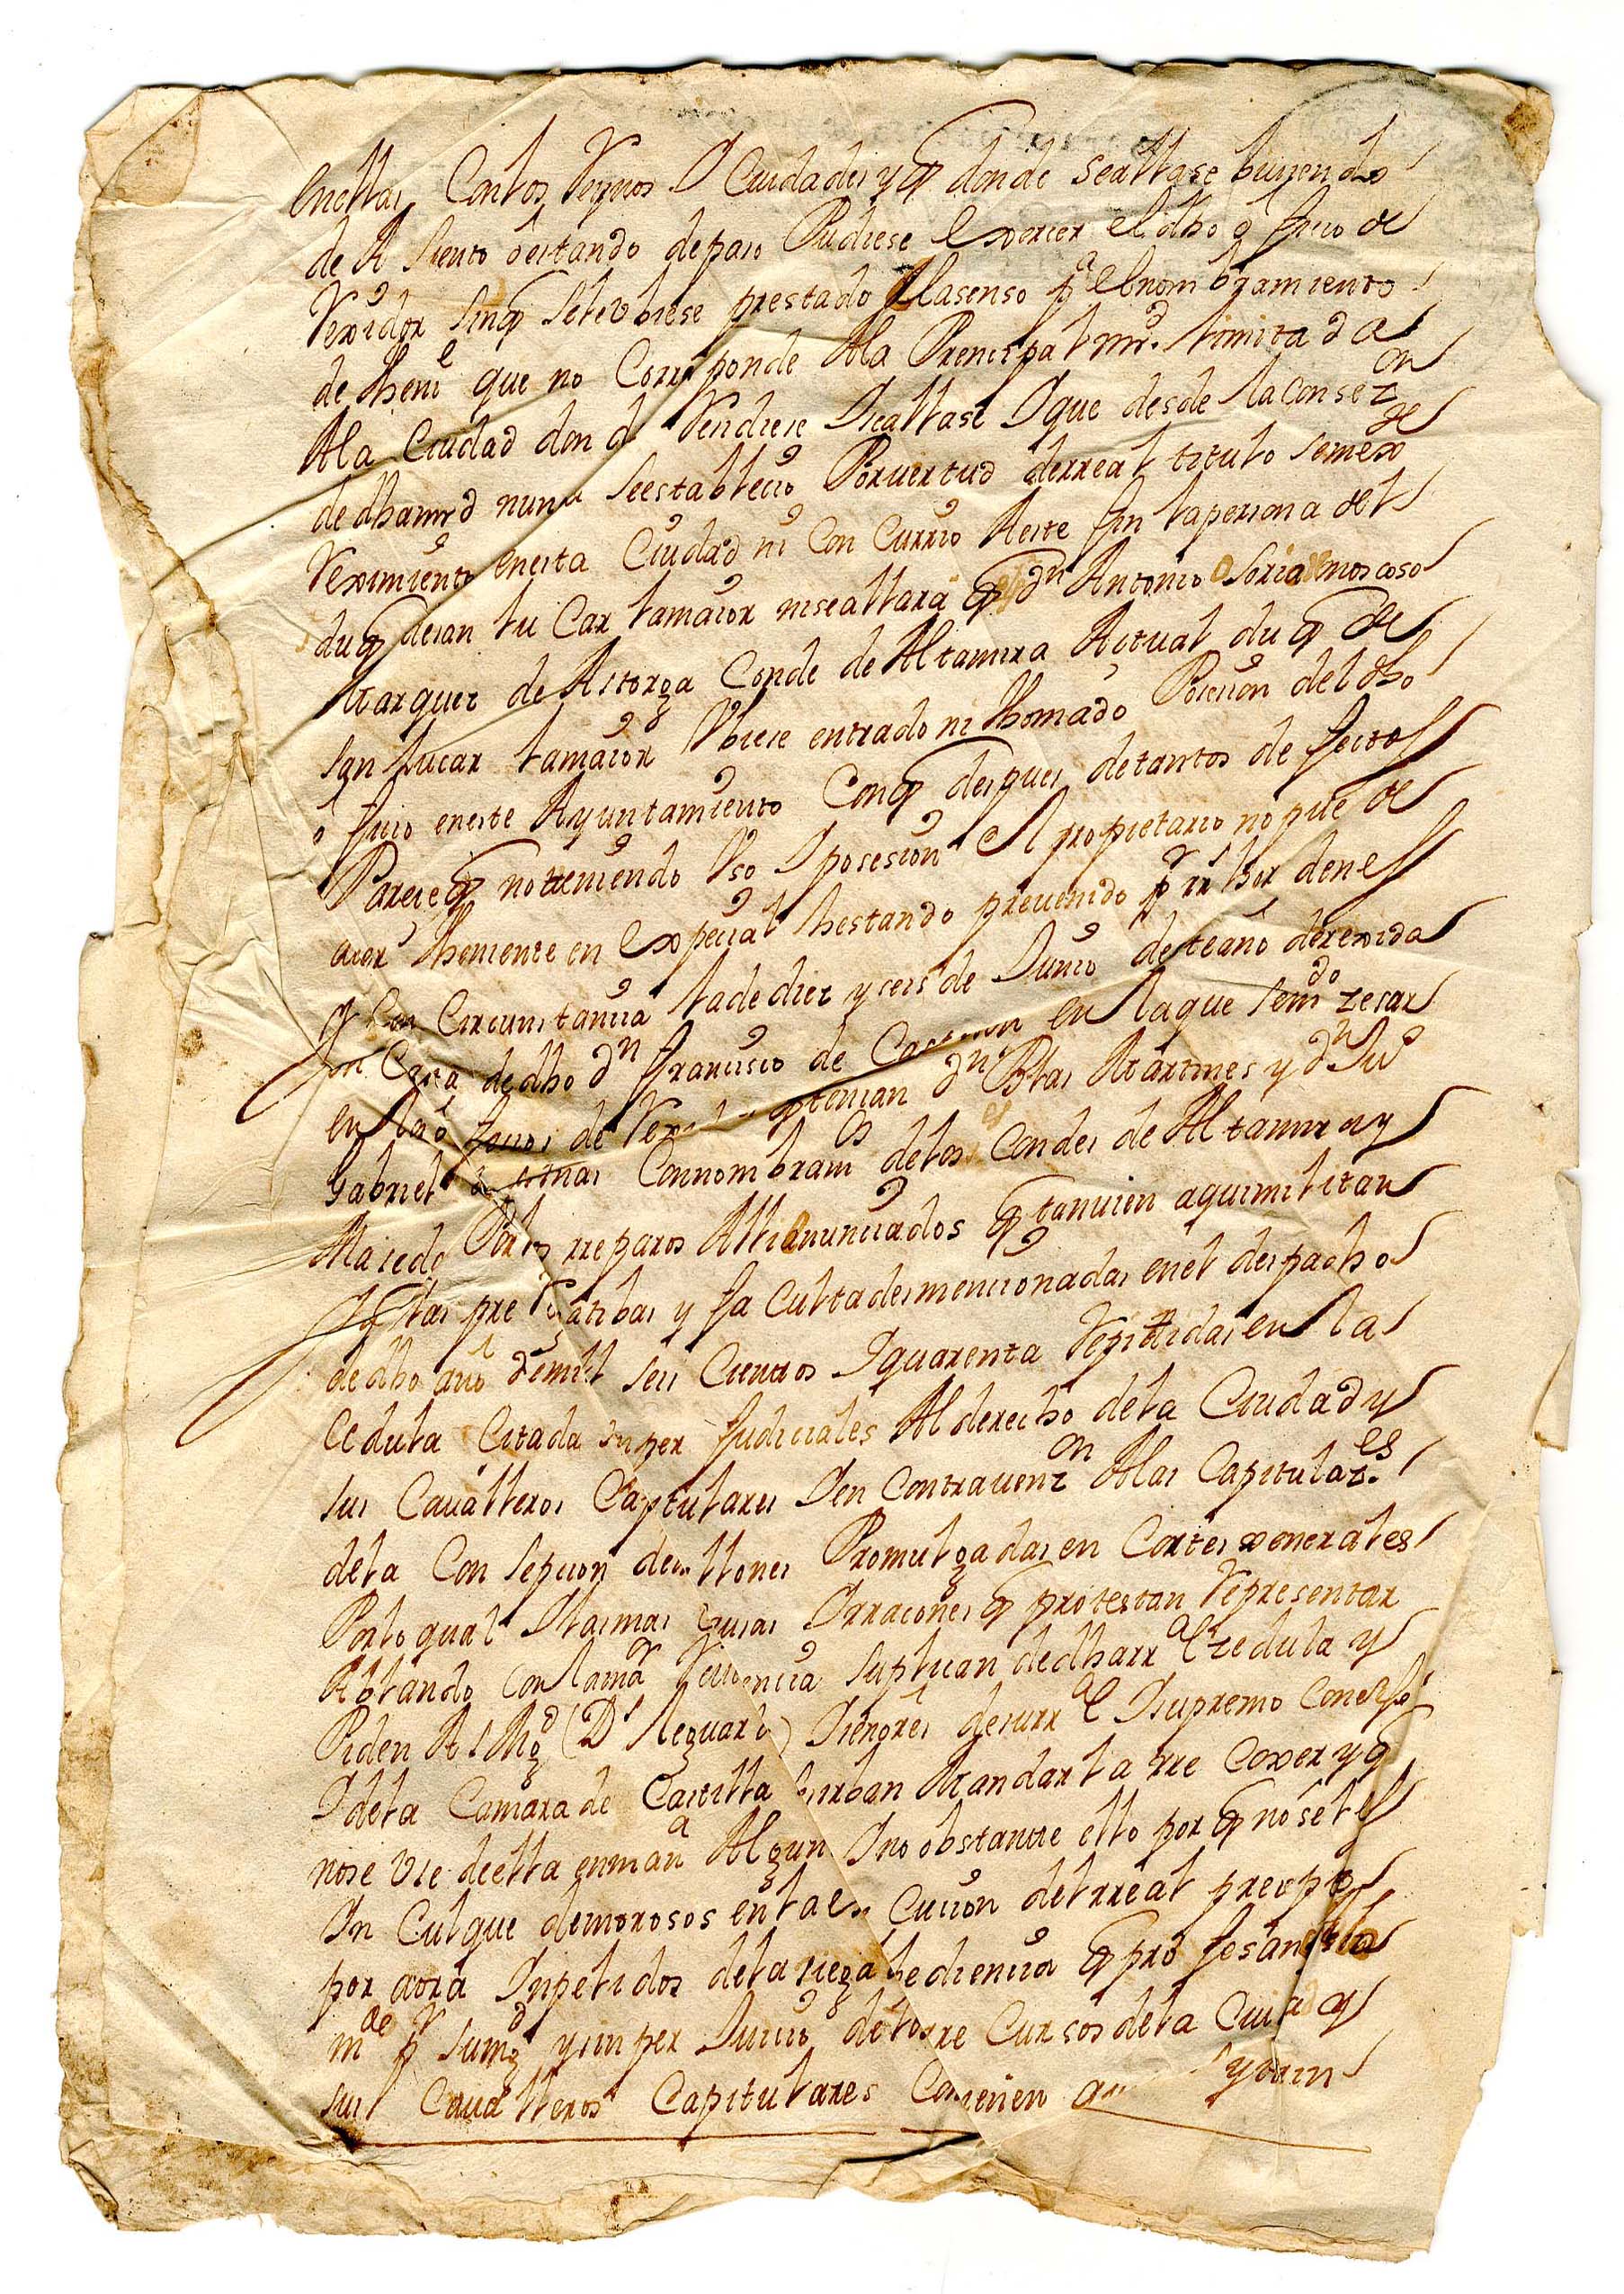 enellas Con los Reynos I Ciudades y q donde se allase biuiendo
de A siento o estando de paso Pudiese Exercer el dho ofiçio de
Rexidor sin q se le Vbiese prestado Elasenso pa el nombramiento
de thene que no Corresponde Ala Prencipal mrd. limitada
Ala Ciudad don de Residiese I se allase I que desde la consezon
de dha mrd nunca se establecio Por uertud de rreal titulo semexe
Reximiento en esta Ciudad ni Con Currio A este fin la persona del
duq de san lu Car la maior ni se allara q dn Antonio Osorio moscoso
Marques de Astorga Conde de Altamira Actual duq de
san lucar la maior Vbiese entrado ni thomado Posesion del dho
ofiçio en este Ayuntamiento Con q despues de tantos defectos
Parece q no teniendo Vso I posesion el propietario no puede
acer Theniente en Expecial hestando preuenido pr rrs hordenes
y en Circunstancia la de diez y seis de Junio de este año derexida
por Carta de dho dn francisco de en la que se mdo zesar
en los ofiçios de q tenian dn Blas Martines y dn Jue
Gabriel Connombramos de los Condes de Altamira y
Macedo Por los rreparos Alli anunciados q tanuien aqui militan
y las prerrogatibas y facultades mencionadas en el despacho
de dho año de mill seis Cientos I quarenta Repitidas en la
Cedula Citada su per judiciales Al derecho de la Ciudad y
sus Caualleros Capitulares I en Contrauenzon Alas Capitulazes
de la Con sepcion de millones Promulgadas en Cortes xenerales
Por lo qual I las mas causas I rraçones q protestan Representar
Ablando con la mar Reuerencia suplican de dha rral zedula y
Piden A S Mgd (Ds le guarde) I señores de su rral I supremo Consejo
I de la Camara de Castilla sirban Mandarla rre Coxer y q
no se Vse de ella en mana Alguna I no obstante ello por q no se les
In Culque de morosos en la exe Cucion del rreal precepto
por aora Inpelidos de la ciega obediencia q profesan
mde pr su mgd y sin per Juicio de los rre Cursos de la Ciudad y
sus Caualleros Capitulares Conuienen